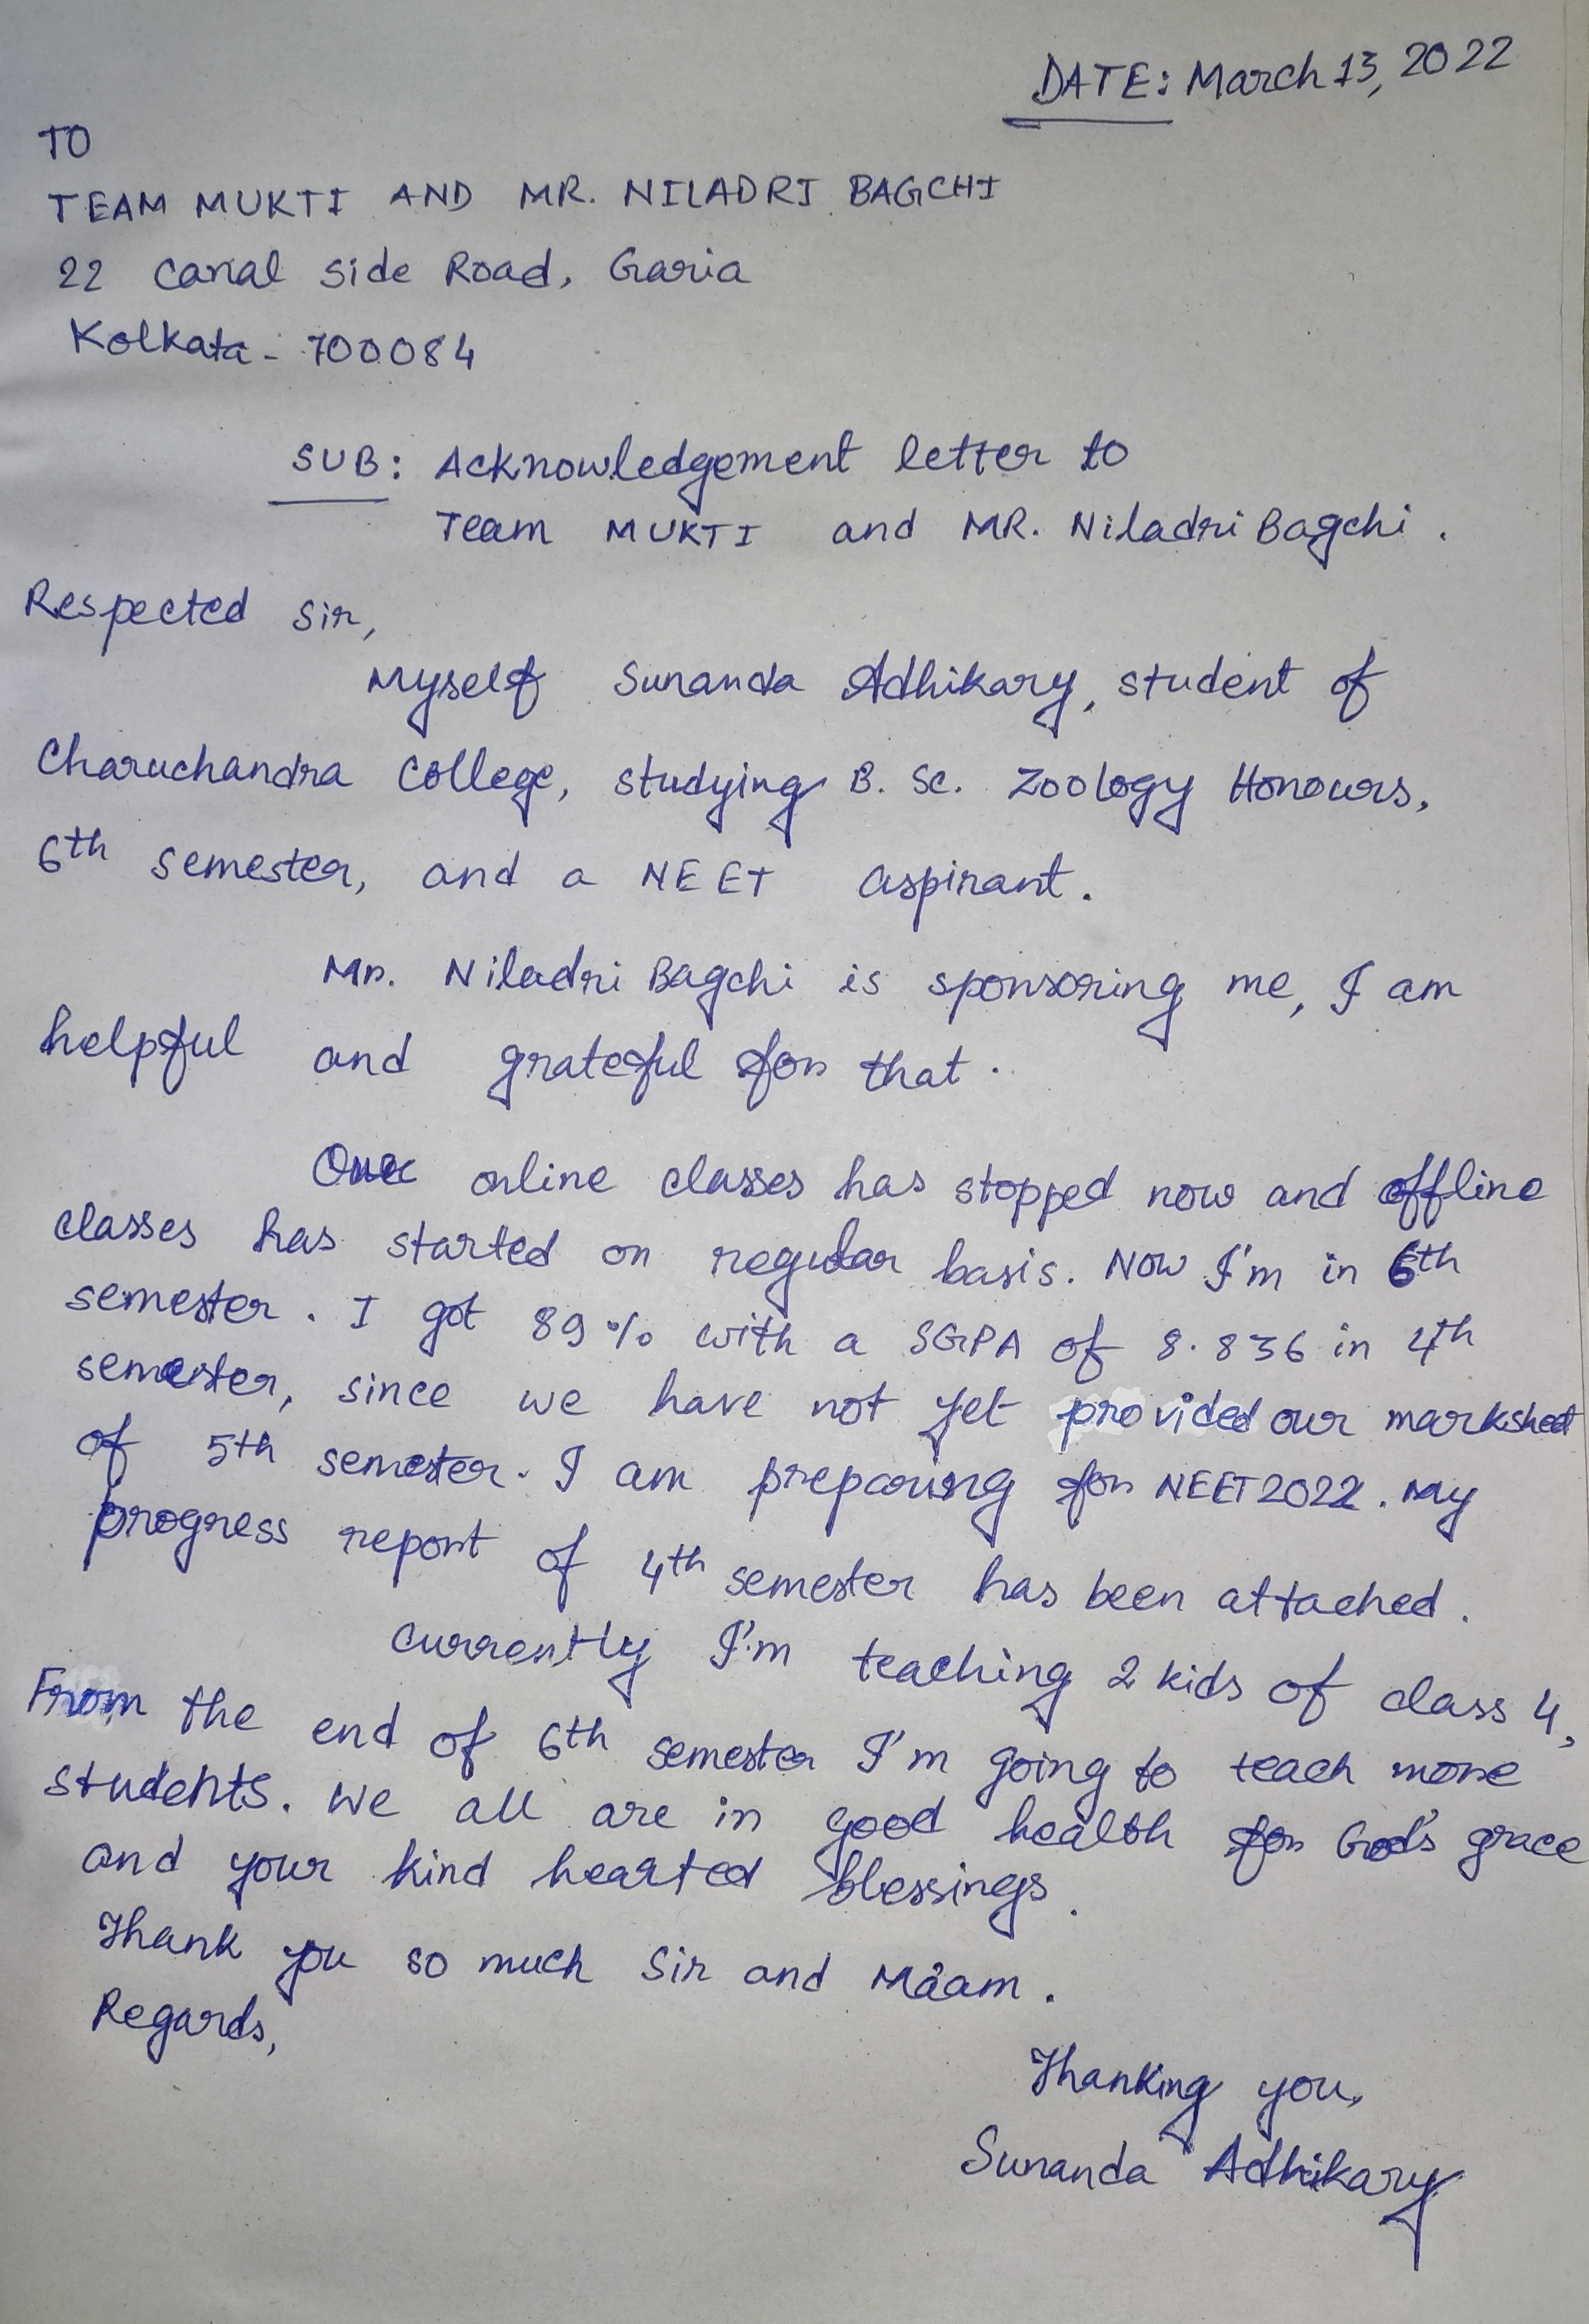 DATE: March 13, 2022
TO
TEAM MUKTI AND MR. NILADRI BAGCHI
22 Canal Side Road, Garia
Kolkata - 700084
SUB: Acknowledgement letter to
Team MUKTI and MR. Niladri Bagchi.
Respected Sir,
Myself Sunanda Adhikary, student of
Charuchandra College, studying B. Sc. Zoology Honours,
6th semester, and a NEET aspirant.
Mr. Niladri Bagchi is sponsoring me, I am
helpful and grateful for that.
Our online classes has stopped now and offline
classes has started on regular basis. Now I'm in 6th
semester. I got 89% with a SGPA of 8.836 in 4th
semester, since we have not yet provided our marksheet
of 5th semester. I am preparing for NEET 2022. My
progress report of 4th semester has been attached.
Currently I'm teaching 2 kids of class 4,
From the end of 6th semester I'm going to teach more
students. We all are in good health for God's grace
and your kind hearted blessings.
Thank you so much Sir and Ma'am.
Regards,
Thanking you,
Sunanda Adhikary